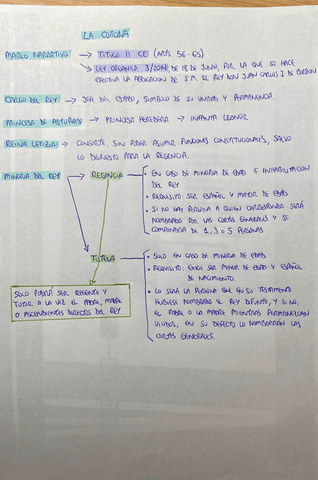 LA CORONA
MARCO NARRATIVO → TITULO II CE (ARTS. 56-65)
→ LEY ORGÁNICA 3/2014, DE 18 DE JUNIO, POR LA QUE SE HACE
EFECTIVA LA ABDICACION DE S.M. EL REY DON JUAN CARLOS I DE BORBON
CARGO DEL REY → JEFE DEL ESTADO, SIMBOLO DE SU UNIDAD Y PERMANENCIA.
PRINCESA DE ASTURIAS → PRINCESA HEREDERA → INFANTA LEONOR
REINA LETIZIA → CONSORTE, SIN PODER ASUMIR FUNCIONES CONSTITUCIONALES, SALVO
LO DISPUESTO PARA LA REGENCIA.
MINORIA DEL REY → REGENCIA
• EN CASO DE MINORIA DE EDAD E INHABILITACION
DEL REY.
• REQUISITO SER ESPAÑOL Y MAYOR DE EDAD
• SI NO HAY PERSONA A QUIEN CORRESPONDA SERÁ
NOMBRADA POR LAS CORTES GENERALES Y SE
COMPONDRIA DE 1, 3 O 5 PERSONAS
TUTELA
• SOLO EN CASO DE MINORIA DE EDAD.
• REQUISITO: EXIGE SER MAYOR DE EDAD Y ESPAÑOL
DE NACIMIENTO.
• LO SERÁ LA PERSONA QUE EN SU TESTAMENTO
HUBIESE NOMBRADO EL REY DIFUNTO, Y SI NO,
EL PADRE O LA MADRE MIENTRAS PERMANEZCAN
VIUDOS, EN SU DEFECTO LO NOMBRARAN LAS
CORTES GENERALES.
SOLO PODRÁ SER REGENTE Y
TUTOR A LA VEZ EL PADRE, MADRE
O ASCENDIENTES DIRECTOS DEL REY.